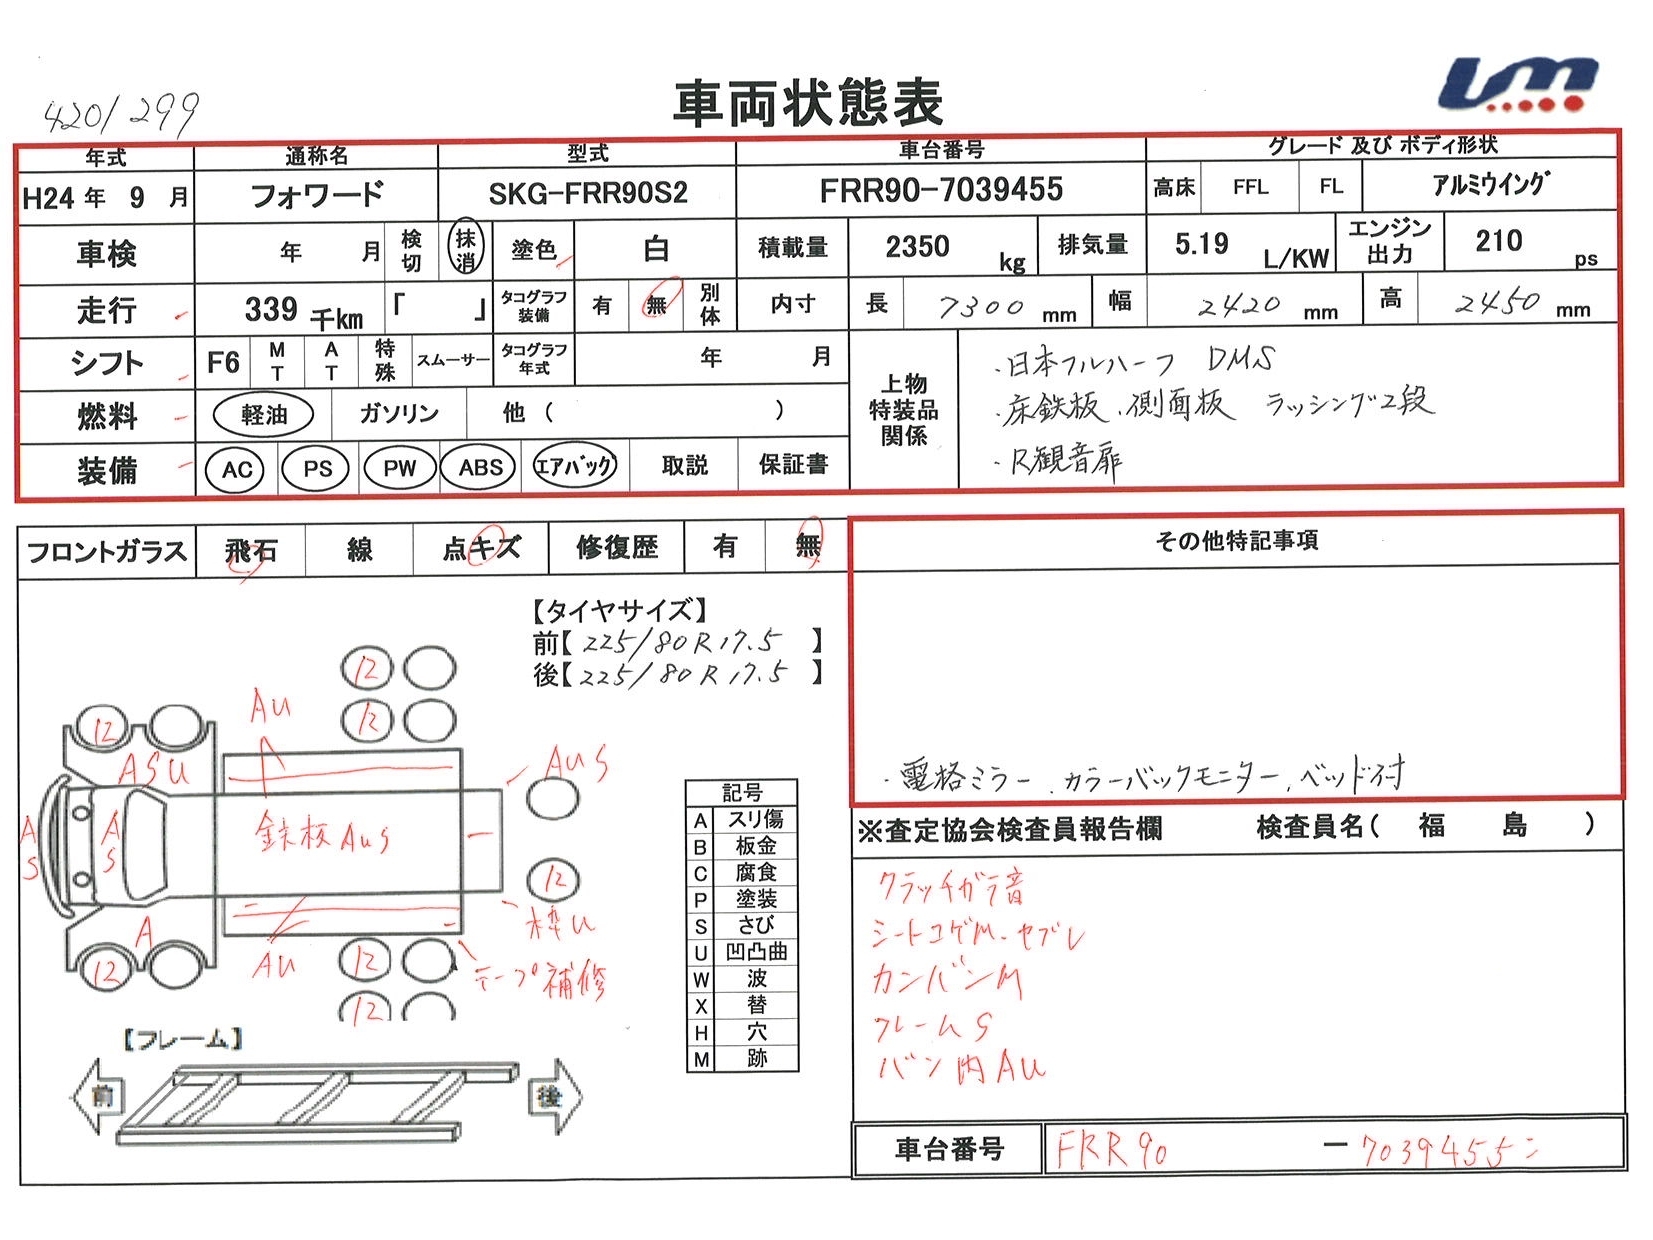 車両状態表
420/299
年式 通称名 型式 車台番号 グレード 及び ボディ形状
H24 年 9 月 フォワード SKG-FRR90S2 FRR90-7039455 高床 FFL FL アルミウイング
車検 年 月 検切 抹消 塗色 白 積載量 2350 kg 排気量 5.19 L/KW エンジン出力 210 ps
走行 339 千km 「 」 タコグラフ装備 有 無 別体 内寸 長 7300 mm 幅 2420 mm 高 2450 mm
シフト F6 MT AT 特殊 スムーサー タコグラフ年式 年 月
燃料 軽油 ガソリン 他 ( )
装備 AC PS PW ABS エアバッグ 取説 保証書
上物特装品関係
・日本フルハーフ DMS
・床鉄板、側面板 ラッシング2段
・R観音扉
フロントガラス 飛石 線 点キズ 修復歴 有 無
その他特記事項
・電格ミラー 、カラーバックモニター、ベッド付
【タイヤサイズ】
前【 225/80R17.5 】
後【 225/80R17.5 】
12
12
12
Au
ASU
AuS
AS
AS
鉄板AuS
12
枠U
A
Au
12
12
12
テープ補修
記号
A スリ傷
B 板金
C 腐食
P 塗装
S さび
U 凹凸曲
W 波
X 替
H 穴
M 跡
【フレーム】
前
後
※査定協会検査員報告欄 検査員名( 福 島 )
クラッチガラ音
シートコゲM.ヤブレ
カンバンM
フレームS
バン内AU
車台番号 FRR90 ー 7039455